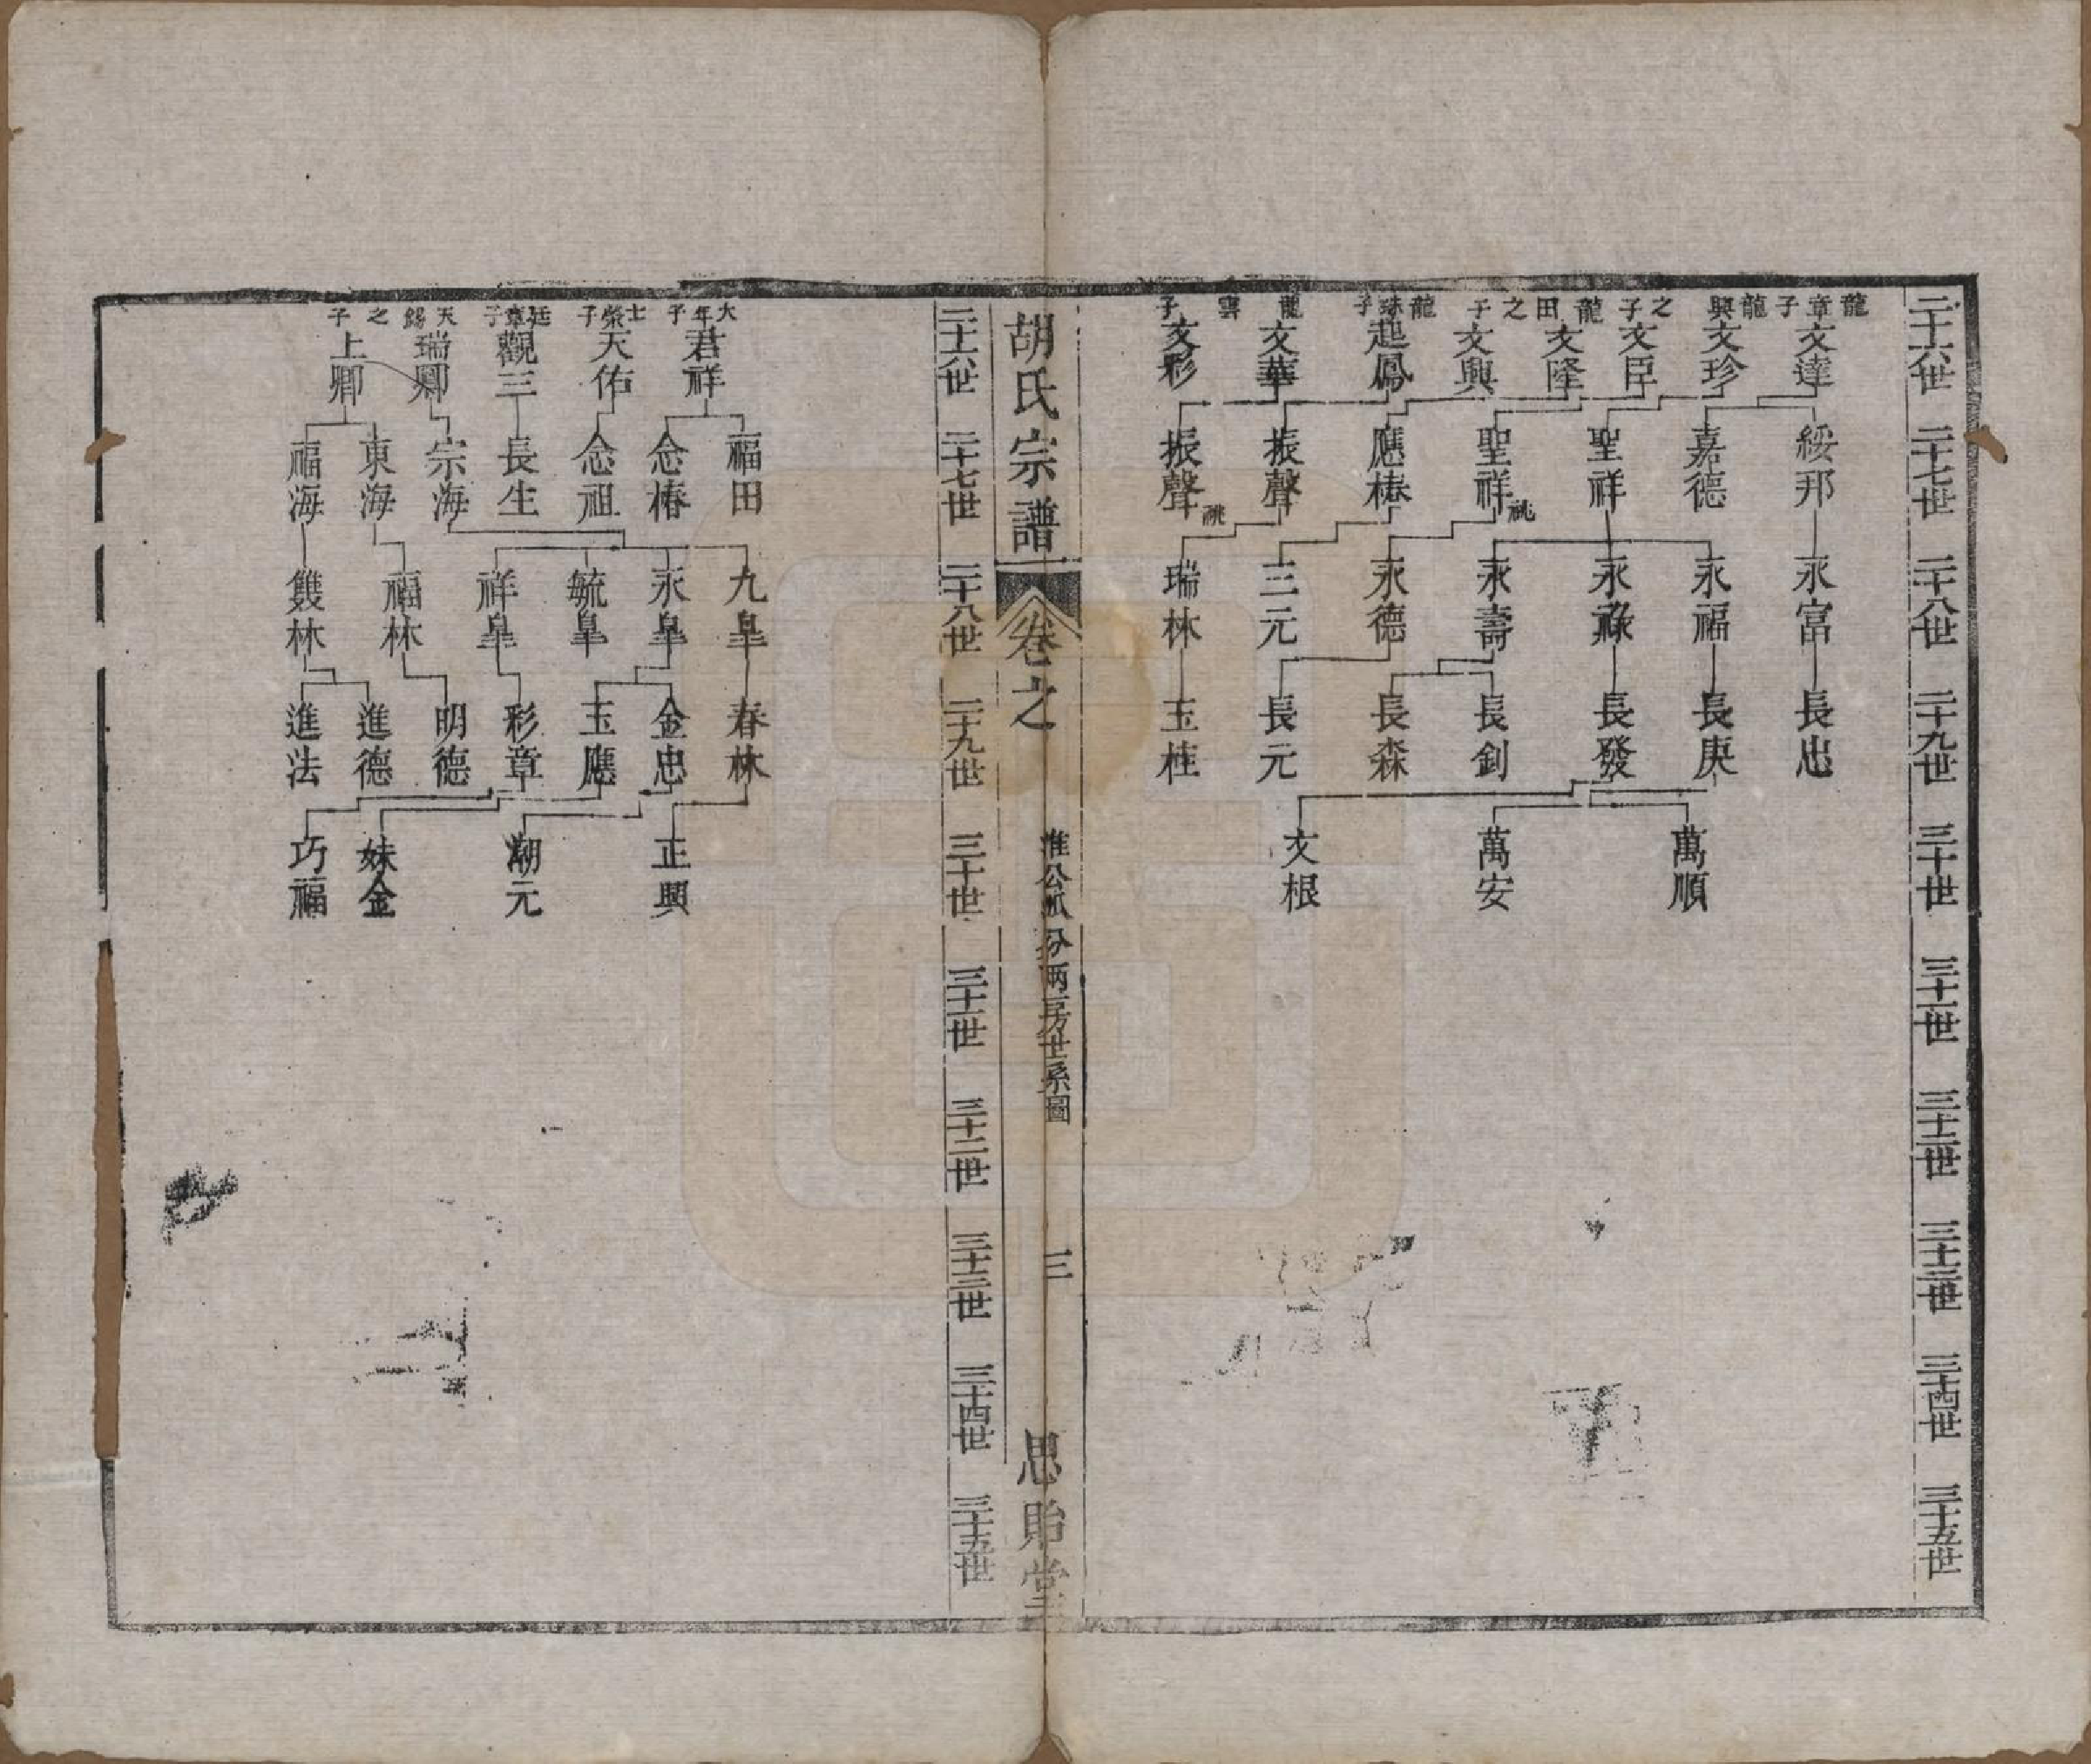 二十六世 二十七世 二十八世 二十九世 三十世 三十一世 三十二世 三十三世 三十四世 三十五世
龍章子 龍興之子 龍田之子 龍珠子 龍雲子
文達 文珍 文臣 文隆 文興 起鳳 文華 文彩
綏邦 嘉德 聖祥 聖祥祧 應椿 振聲 振聲祧
永富 永福 永祿 永壽 永德 三元 瑞林
長忠 長庚 長發 長釗 長森 長元 玉桂
萬順 萬安 文根
胡氏宗譜 卷之 淮公派分兩房世系圖 三 思貽堂
二十六世 二十七世 二十八世 二十九世 三十世 三十一世 三十二世 三十三世 三十四世 三十五世
大年子 士榮子 廷章子 天錫之子
君祥 天佑 觀三 瑞卿 上卿
福田 念椿 念祖 長生 宗海 東海 福海
九皐 永皐 毓皐 祥皐 福林 雙林
春林 金忠 玉應 彩章 明德 進德 進法
正興 潮元 妹金 巧福